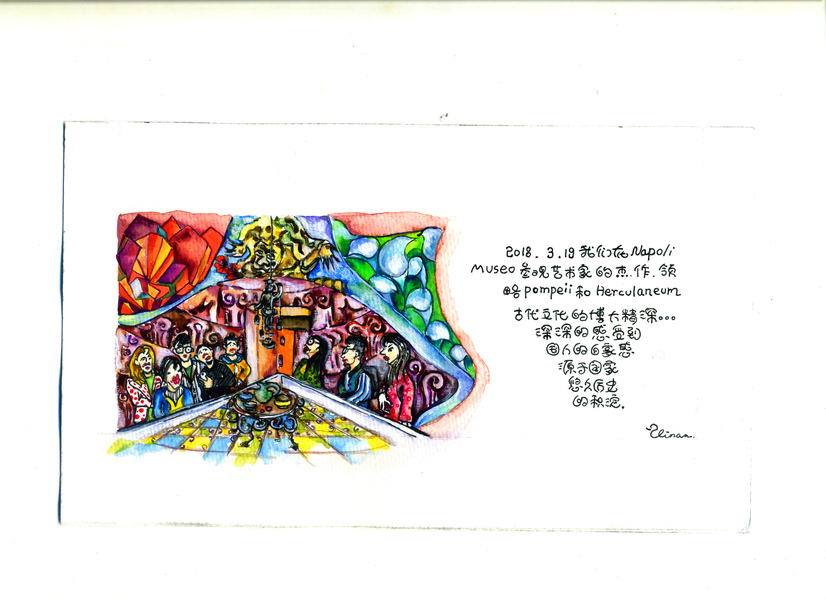 2018.3.19 我们在Napoli
Museo 参观艺术家的杰作.领
略pompeii和Herculaneum
古代文化的博大精深...
深深的感受到
国人的自豪感
源于国家
悠久历史
的积淀.
Elinan.